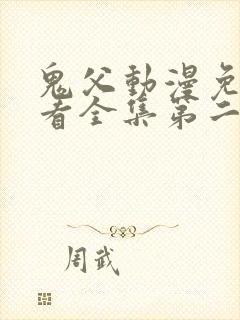 鬼父動漫免
看全集第二
周武